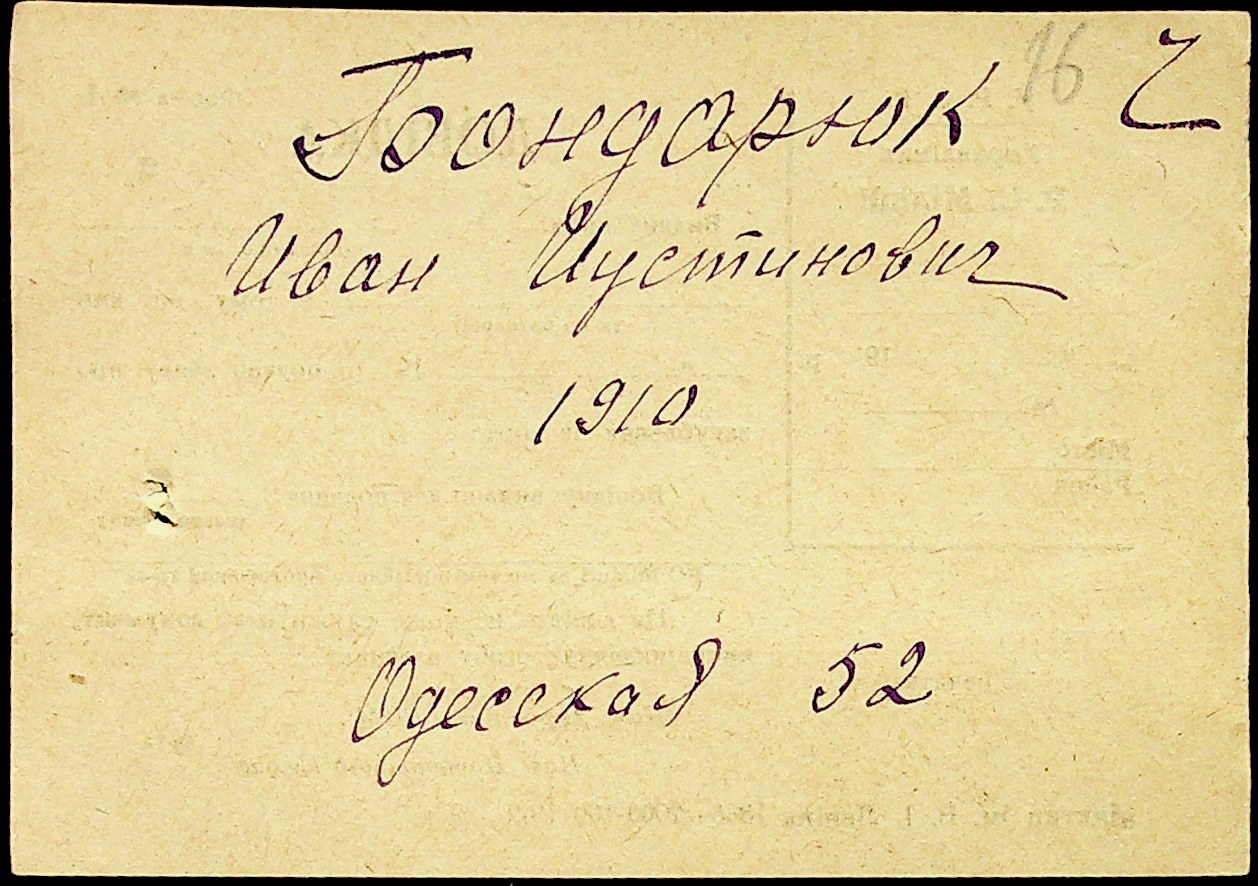 16 Ч
Бондарюк
Иван Иустинович
1910
Одесская 52